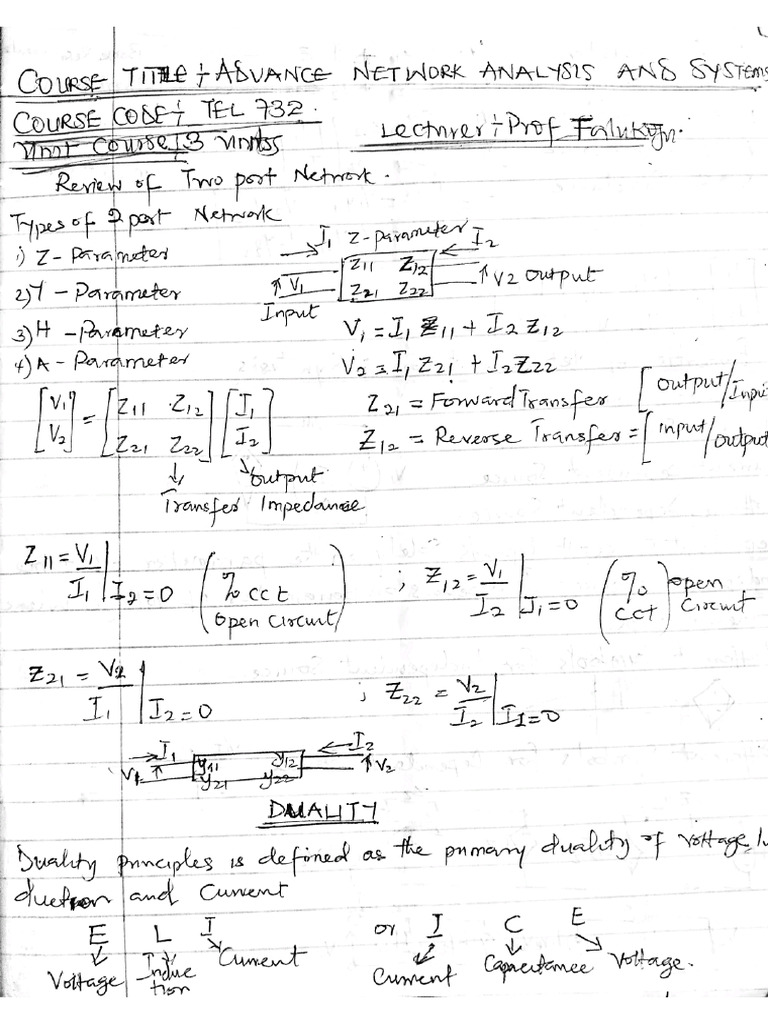 COURSE TITLE ÷ ADVANCE NETWORK ANALYSIS AND SYSTEMS
COURSE CODE ÷ TEL 732.
Unit Course ÷ 3 units
Lecturer ÷ Prof
Review of Two port Network.
Types of 2 port Network
1) Z - Parameter
2) Y - Parameter
3) H - Parameter
4) A - Parameter
I1 Z-parameter I2
V1 Z11 Z12 V2 output
Z21 Z22
Input
V1 = I1 Z11 + I2 Z12
V2 = I1 Z21 + I2 Z22
[V1 V2] = [Z11 Z12 Z21 Z22] [I1 I2]
Z21 = Forward Transfer [output/Inpu
Z12 = Reverse Transfer = [input/output
output
Transfer Impedance
Z11 = V1/I1 | I2 = 0 (o/o cct open circuit) ; Z12 = V1/I2 | I1 = 0 (o/o cct) open circuit
Z21 = V2/I1 | I2 = 0 ; Z22 = V2/I2 | I1 = 0
I1 I2
V1 y11 y12 V2
y21 y22
DUALITY
Duality principles is defined as the primary duality of voltage, In
duction and Current
E L I or I C E
Voltage Induc Current Current Capacitance Voltage.
tion